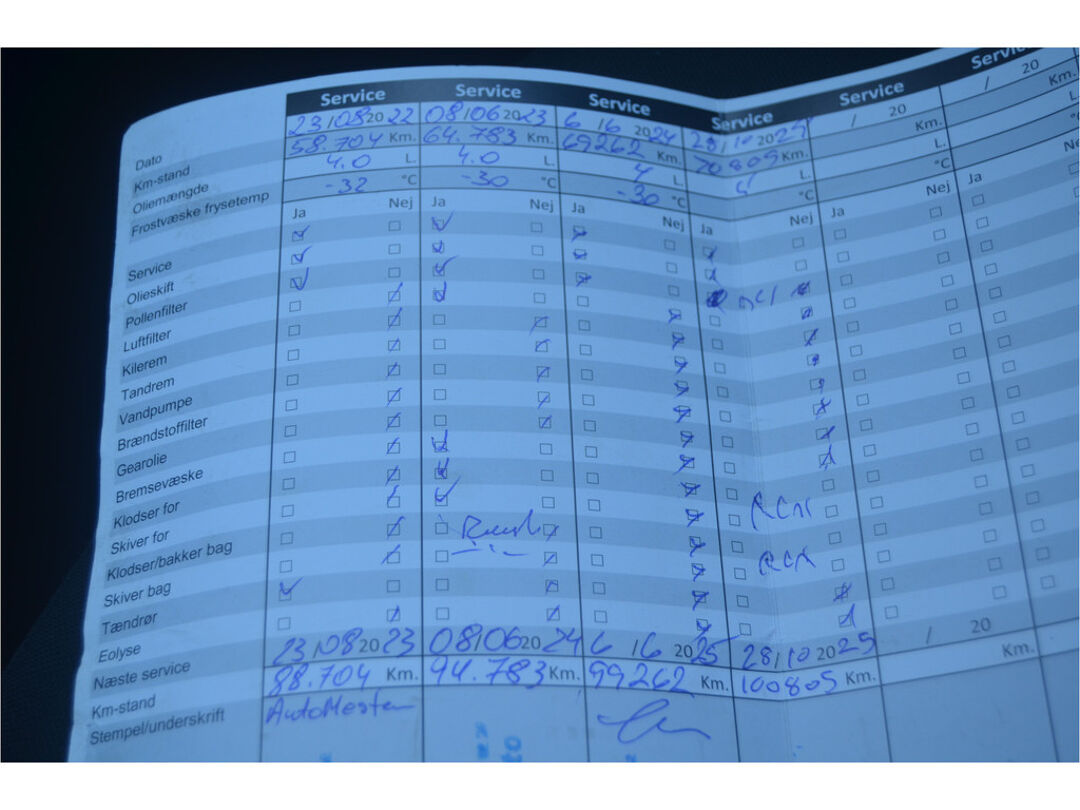 Service Service Service Service Service Service
Dato 23/08 20 22 08/06 20 23 6/6 20 24 28/10 20 / 20 / 20
Km-stand 58.704 Km. 64.783 Km. 69262 Km. 70805 Km. Km. Km.
Oliemængde 4.0 L. 4.0 L. 4 L. L. L. L.
Frostvæske frysetemp -32 °C -30 °C -30 °C °C °C
Ja Nej Ja Nej Ja Nej Ja Nej Ja Nej Ja
Service
Olieskift
Pollenfilter
Luftfilter
Kilerem
Tandrem
Vandpumpe
Brændstoffilter
Gearolie
Bremsevæske
Klodser for
Skiver for
Klodser/bakker bag
Skiver bag
Tændrør
Eolyse
Næste service 23/08 20 23 08/06 20 24 6/6 20 25 28/10 20 25 / 20
Km-stand 88.704 Km. 94.783 Km. 99262 Km. 100805 Km. Km.
Stempel/underskrift AutoMester